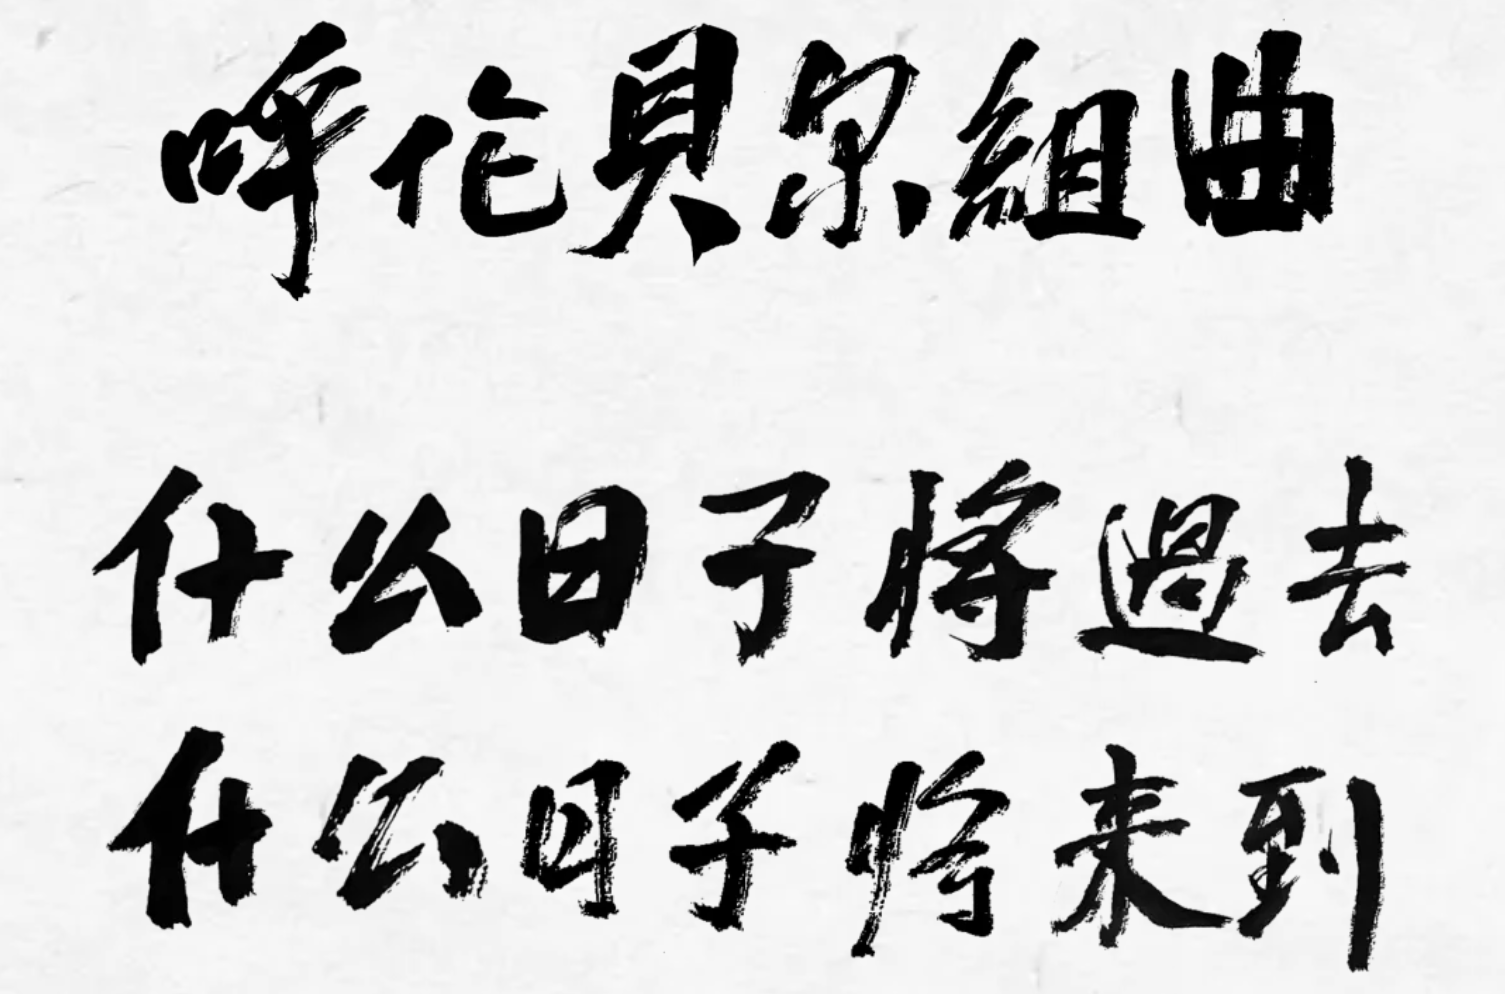 呼伦貝尔組曲
什么日子將過去
什么日子将来到